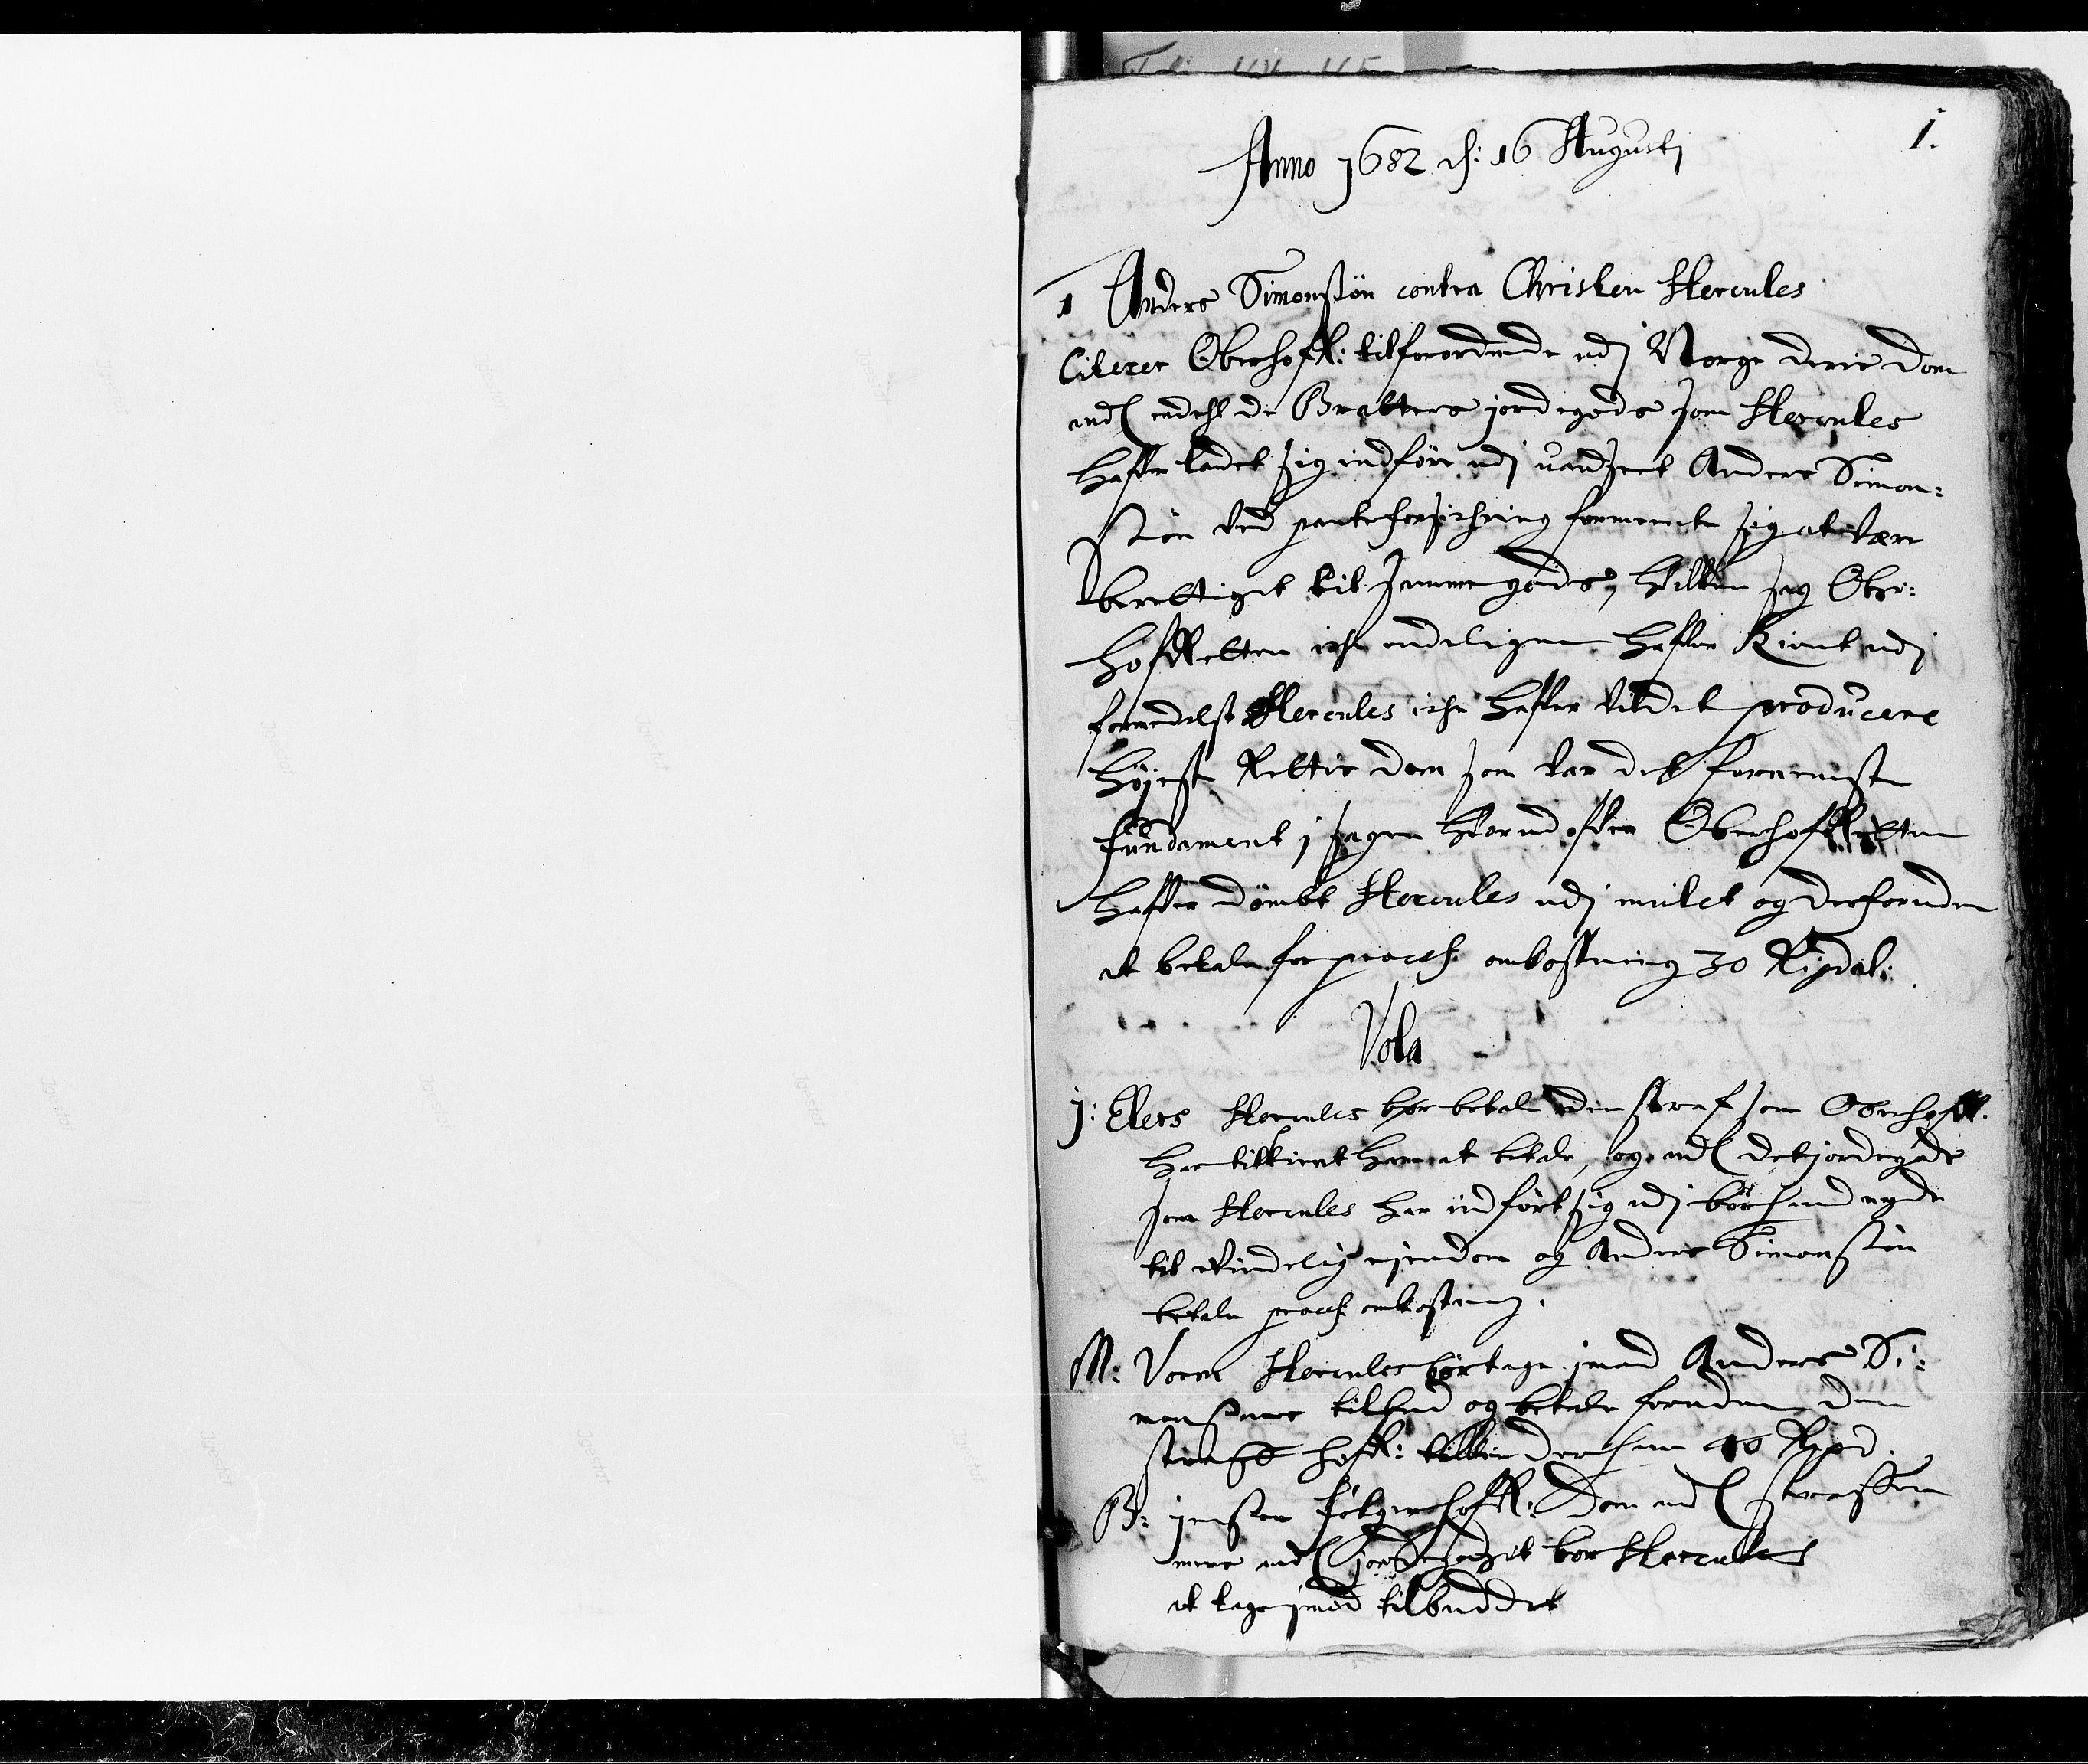 1.
Anno 1682 d: 16 Augustj
1 Anders Simonsßön contra Christen Hercules
Citerer Oberhofr: tilforordnede udj Norge deris dom
end endehl de Bratters jordegods som Hercules
hafver ladet sig indføre udj uandseet Anders Simon:
ßøn ved panteforsichring formente sig at være
berettiget til samme gods, hvilken sag Ober:
hofRetten iche endeligen hafver Kient udj
formedelst Hercules iche hafver vildet producere
høyeste Rettis dom som var det fornemste
fundament j sagen hvorudofver OberhofRetten
hafver dömbt Hercules udj mulct og derforuden
at betale for process omkostning 30 Rixdal:
Vota
j: Elers Hercules bør betale den straf som Oberhofr.
har tilkient ham at betale, og end det jordegods
som Hercules har indført sig udj bör hand nyde
til ævindelig ejendom og Anders Simonsøn
betale process omkostning.
M: Worm Hercules bör tage jmod Anders Si:
monßøns tilbud og betale foruden den
straff hofr: tilkiender ham 40 Rixd.
B: jensøn følger hofr: dom end straffen
men end jordegodzit bör Hercules
at tage jmod tilbuddet